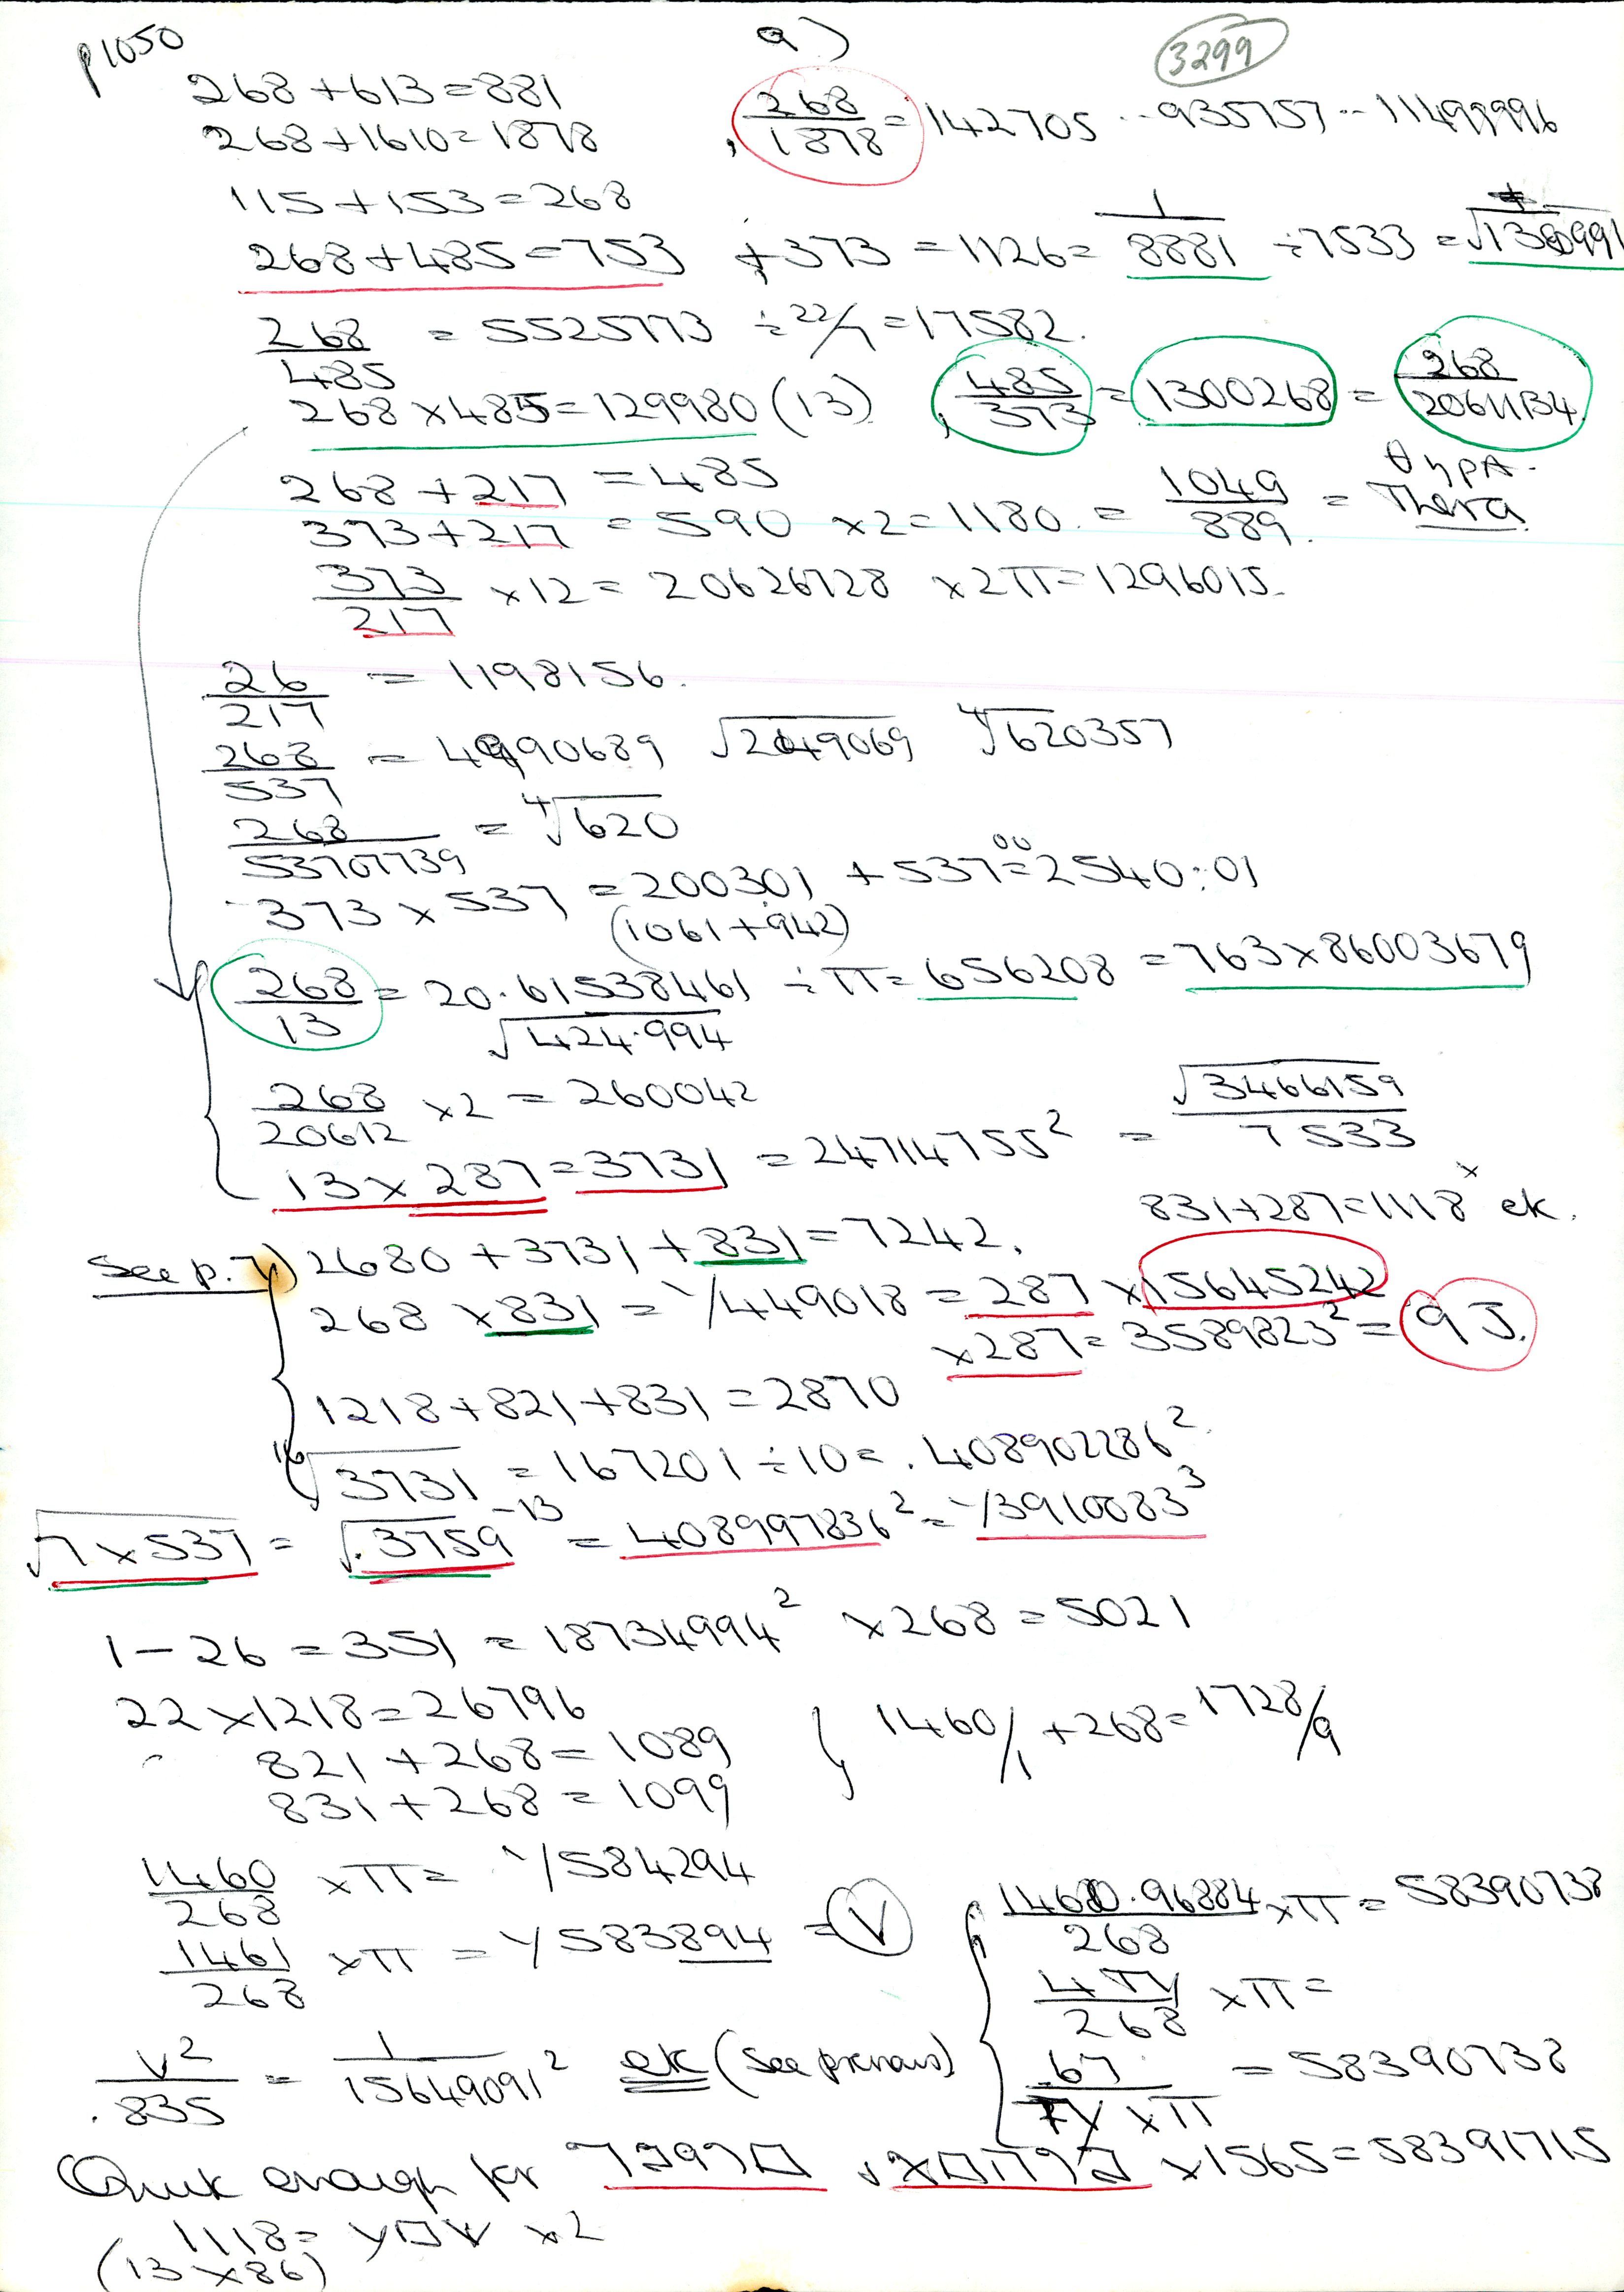 p1050
9)
3299
268 + 613 = 881
268 + 1610 = 1878 , 268/1878 = 142705 ·· 935757 ·· 11499996
115 + 153 = 268
268 + 485 = 753 + 373 = 1126 = 1/8881 ÷ 7533
268/485 = 5525773 ÷ 22/7 = 17582.
268 × 485 = 129980 (13) , 485/373 = 1300268 = 268/20611134.
268 + 217 = 485
373 + 217 = 590 × 2 = 1180. = 1049/889. = Thera
373/217 × 12 = 20626728 × 2π = 1296015.
26/217 = 1198156.
268/537 = 4990689 √2049069 ∜620357
268/53707739 = ∜620
373 × 537 = 200301 + 537°° = 2540:01
(1061 + 942)
268/13 = 20.61538461 ÷ π = 656208 = 763 × 86003679
√424.994
268/20612 × 2 = 260042
13 × 287 = 3731 = 24714755² = √3466159/7533
831 + 287 = 1118 × ek.
See p. 7) 2680 + 3731 + 831 = 7242.
268 × 831 = 1/449018 = 287 × 15645242
× 287 = 3589823² = 9J.
1218 + 821 + 831 = 2870
¹⁶√3731 = 167201 ÷ 10 = .408902286²
√7 × 537 = √.3759 ⁻¹³ = 408997836² = 1/3910083³
1 - 26 = 351 = 18734994² × 268 = 5021
22 × 1218 = 26796
821 + 268 = 1089 } 1460/1 + 268 = 1728/9
831 + 268 = 1099
1460/268 × π = 1/584294
1461/268 × π = 1/583894 = V
1460.96884/268 × π = 58390738
268 × π =
67 = 58390738
V²/.835 = 1/15649091² ek (see previous)
Quick enough for × 1565 = 58391715
1118 = × 2
(13 × 86)